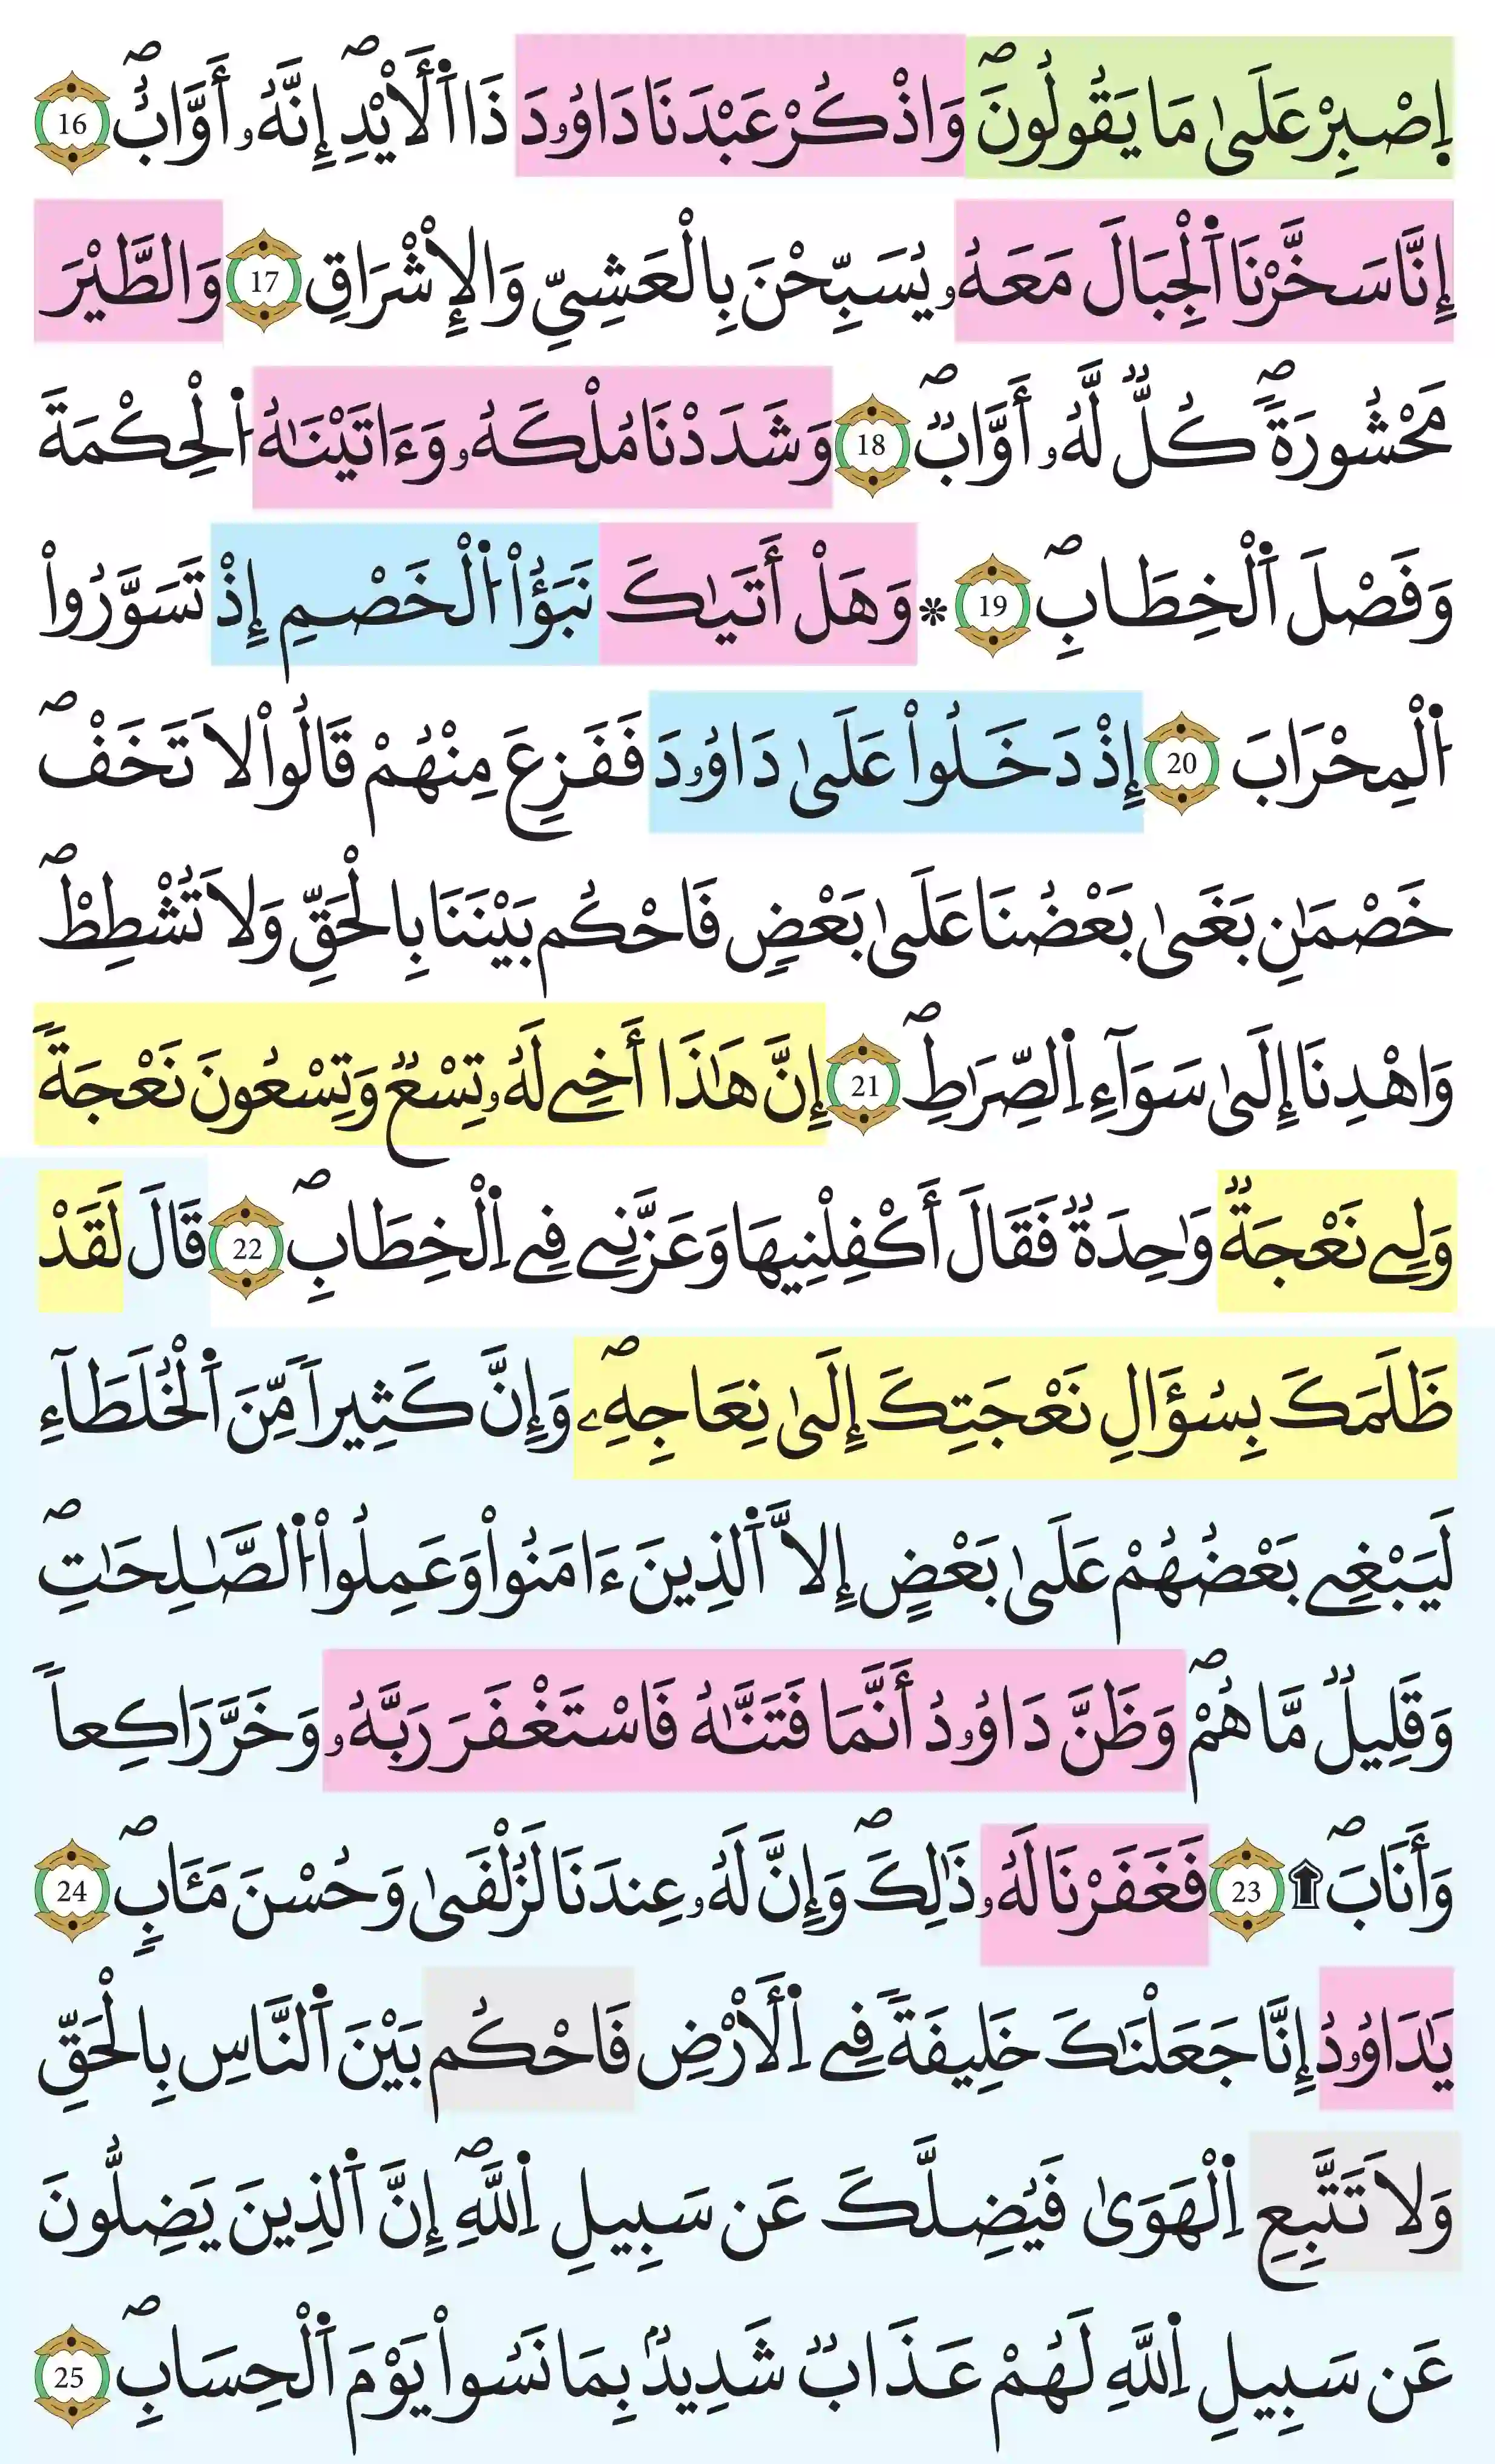 اِصْبِرْ عَلَىٰ مَا يَقُولُونَۖ وَاذْكُرْ عَبْدَنَا دَاوُۥدَ ذَا اَ۬لَايْدِۖ إِنَّهُۥ أَوَّابٌۖ 16
إِنَّا سَخَّرْنَا اَ۬لْجِبَالَ مَعَهُۥ يُسَبِّحْنَ بِالْعَشِيِّ وَالِاشْرَاقِ 17 وَالطَّيْرَ
مَحْشُورَةٗۖ كُلّٞ لَّهُۥ أَوَّابٞۖ 18 وَشَدَدْنَا مُلْكَهُۥ وَءَاتَيْنَٰهُ اُ۬لْحِكْمَةَ
وَفَصْلَ اَ۬لْخِطَابِۖ 19 ۞ وَهَلْ أَتَيٰكَ نَبَؤُاْ اُ۬لْخَصْمِ إِذْ تَسَوَّرُواْ
اُ۬لْمِحْرَابَ 20 إِذْ دَخَلُواْ عَلَىٰ دَاوُۥدَ فَفَزِعَ مِنْهُمْ قَالُواْ لَا تَخَفْۖ
خَصْمَٰنِ بَغَىٰ بَعْضُنَا عَلَىٰ بَعْضٖ فَاحْكُم بَيْنَنَا بِالْحَقِّ وَلَا تُشْطِطْۖ
وَاهْدِنَا إِلَىٰ سَوَآءِ اِ۬لصِّرَٰطِۖ 21 إِنَّ هَٰذَا أَخِے لَهُۥ تِسْعٞ وَتِسْعُونَ نَعْجَةٗ
وَلِے نَعْجَةٞ وَٰحِدَةٞ فَقَالَ أَكْفِلْنِيهَا وَعَزَّنِے فِے اِ۬لْخِطَابِۖ 22 قَالَ لَقَدْ
ظَلَمَكَ بِسُؤَالِ نَعْجَتِكَ إِلَىٰ نِعَاجِهِۦۖ وَإِنَّ كَثِيراٗ مِّنَ اَ۬لْخُلَطَآءِ
لَيَبْغِے بَعْضُهُمْ عَلَىٰ بَعْضٍ إِلَّا اَ۬لذِينَ ءَامَنُواْ وَعَمِلُواْ اُ۬لصَّٰلِحَٰتِۖ
وَقَلِيلٞ مَّا هُمْۖ وَظَنَّ دَاوُۥدُ أَنَّمَا فَتَنَّٰهُ فَاسْتَغْفَرَ رَبَّهُۥ وَخَرَّ رَاكِعاٗ
وَأَنَابَۖ ۩ 23 فَغَفَرْنَا لَهُۥ ذَٰلِكَۖ وَإِنَّ لَهُۥ عِندَنَا لَزُلْفَىٰ وَحُسْنَ مَـَٔابٖۖ 24
يَٰدَاوُۥدُ إِنَّا جَعَلْنَٰكَ خَلِيفَةٗ فِے اِ۬لَارْضِ فَاحْكُم بَيْنَ اَ۬لنَّاسِ بِالْحَقِّ
وَلَا تَتَّبِعِ اِ۬لْهَوَىٰ فَيُضِلَّكَ عَن سَبِيلِ اِ۬للَّهِۖ إِنَّ اَ۬لذِينَ يَضِلُّونَ
عَن سَبِيلِ اِ۬للَّهِ لَهُمْ عَذَابٞ شَدِيدُۢ بِمَا نَسُواْ يَوْمَ اَ۬لْحِسَابِۖ 25